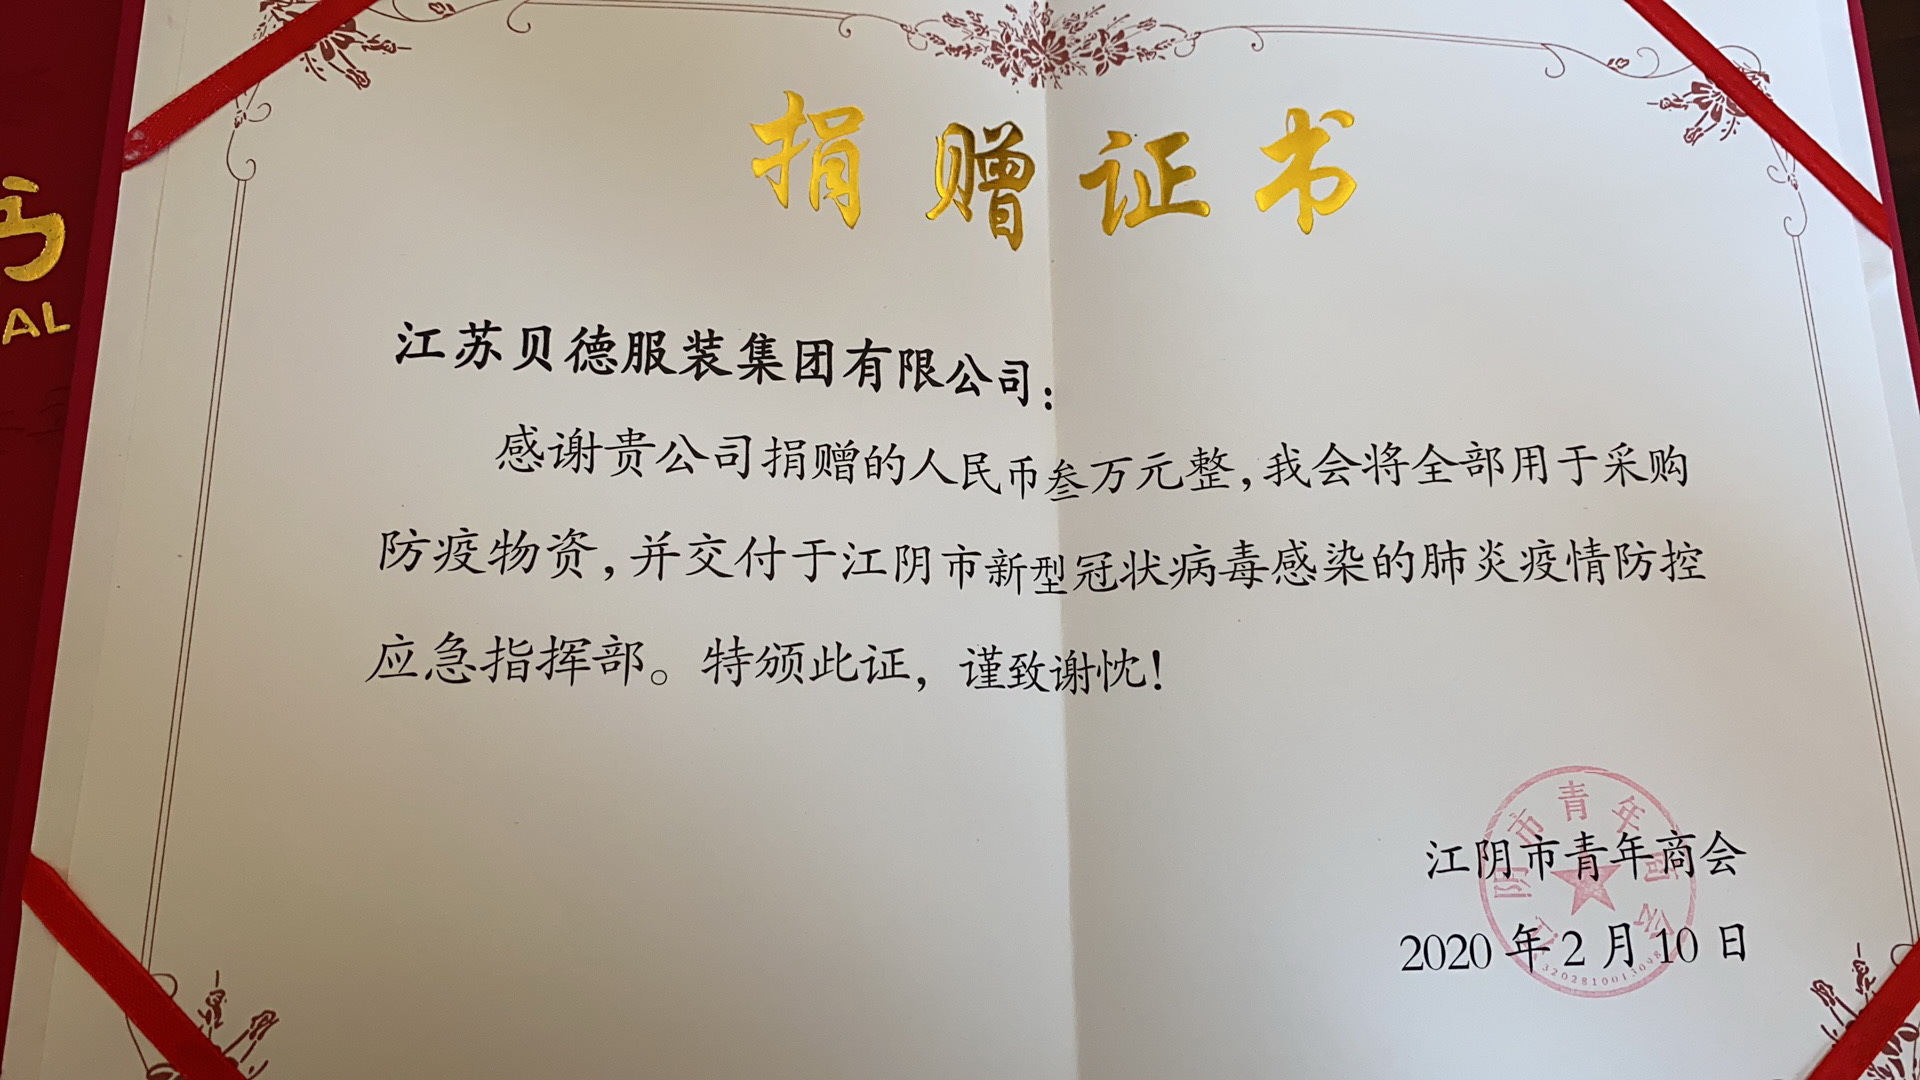 捐赠证书
江苏贝德服装集团有限公司:
感谢贵公司捐赠的人民币叁万元整,我会将全部用于采购
防疫物资,并交付于江阴市新型冠状病毒感染的肺炎疫情防控
应急指挥部。特颁此证,谨致谢忱!
江阴市青年商会
2020年2月10日
江阴市青年商会
AL